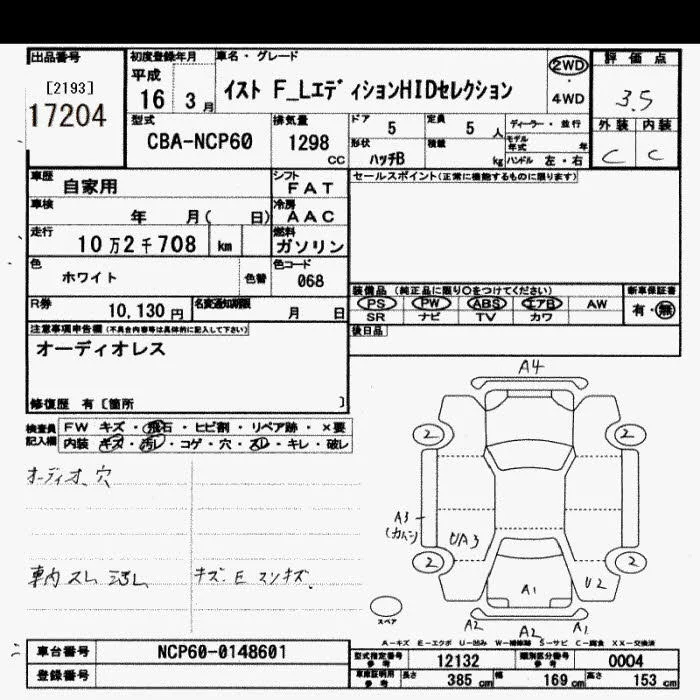 出品番号 初度登録年月 車名・グレード 評価点
[2193] 平成 2WD
17204 16 3月 イスト F_LエディションHIDセレクション ・ 3.5
4WD
型式 排気量 ドア 5 定員 5人 ディーラー・並行 外装 内装
CBA-NCP60 1298 CC 形状 ハッチB 積載 kg モデル年式 年 C C
ハンドル 左・右
車歴 自家用 シフト FAT セールスポイント(正常に機能するものに限ります)
車検 年 月( 日) 冷房 AAC
走行 10万2千708 km 燃料 ガソリン
色 ホワイト 色替 色コード 068
装備品 (純正品に限り○をつけてください) 新車保証書
R券 10,130円 名変通知期限 月 日 PS PW ABS エアB AW 有・無
SR ナビ TV カワ
注意事項申告欄(不具合内容等は具体的に記入して下さい) 後日品
オーディオレス
修復歴 有 [箇所 ]
検査員記入欄 FW キズ・飛石・ヒビ割・リペア跡・×要
内装 キズ・汚レ・コゲ・穴・スレ・キレ・破レ
オーディオ、穴
車内 スレ 汚レ キズ E スリキズ.
A4
2 2
A3
UA3
2 2
A1 U2
スペア
A2 A2 A1
A-キズ E-エクボ U-凹み W-補修跡 S-サビ C-腐食 XX-交換済
車台番号 NCP60-0148601 型式指定番号 参考 12132 類別区分番号 参考 0004
登録番号 車庫証明用 参考 長さ 385 cm 幅 169 cm 高さ 153 cm